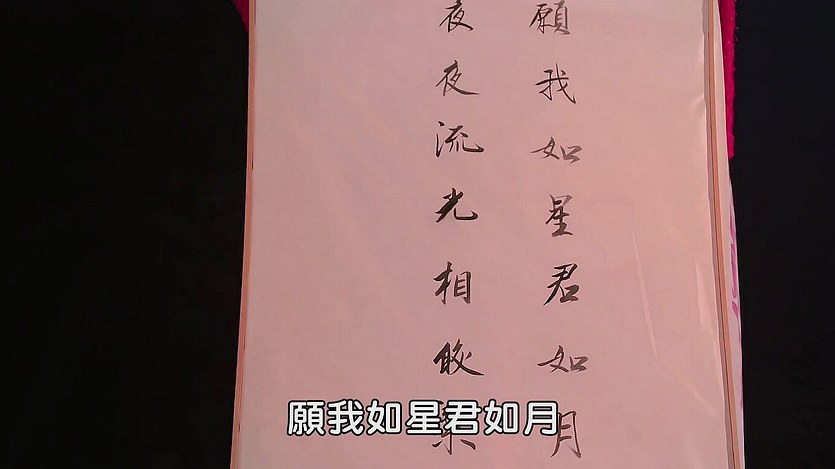 願我如星君如月
夜夜流光相皎
願我如星君如月